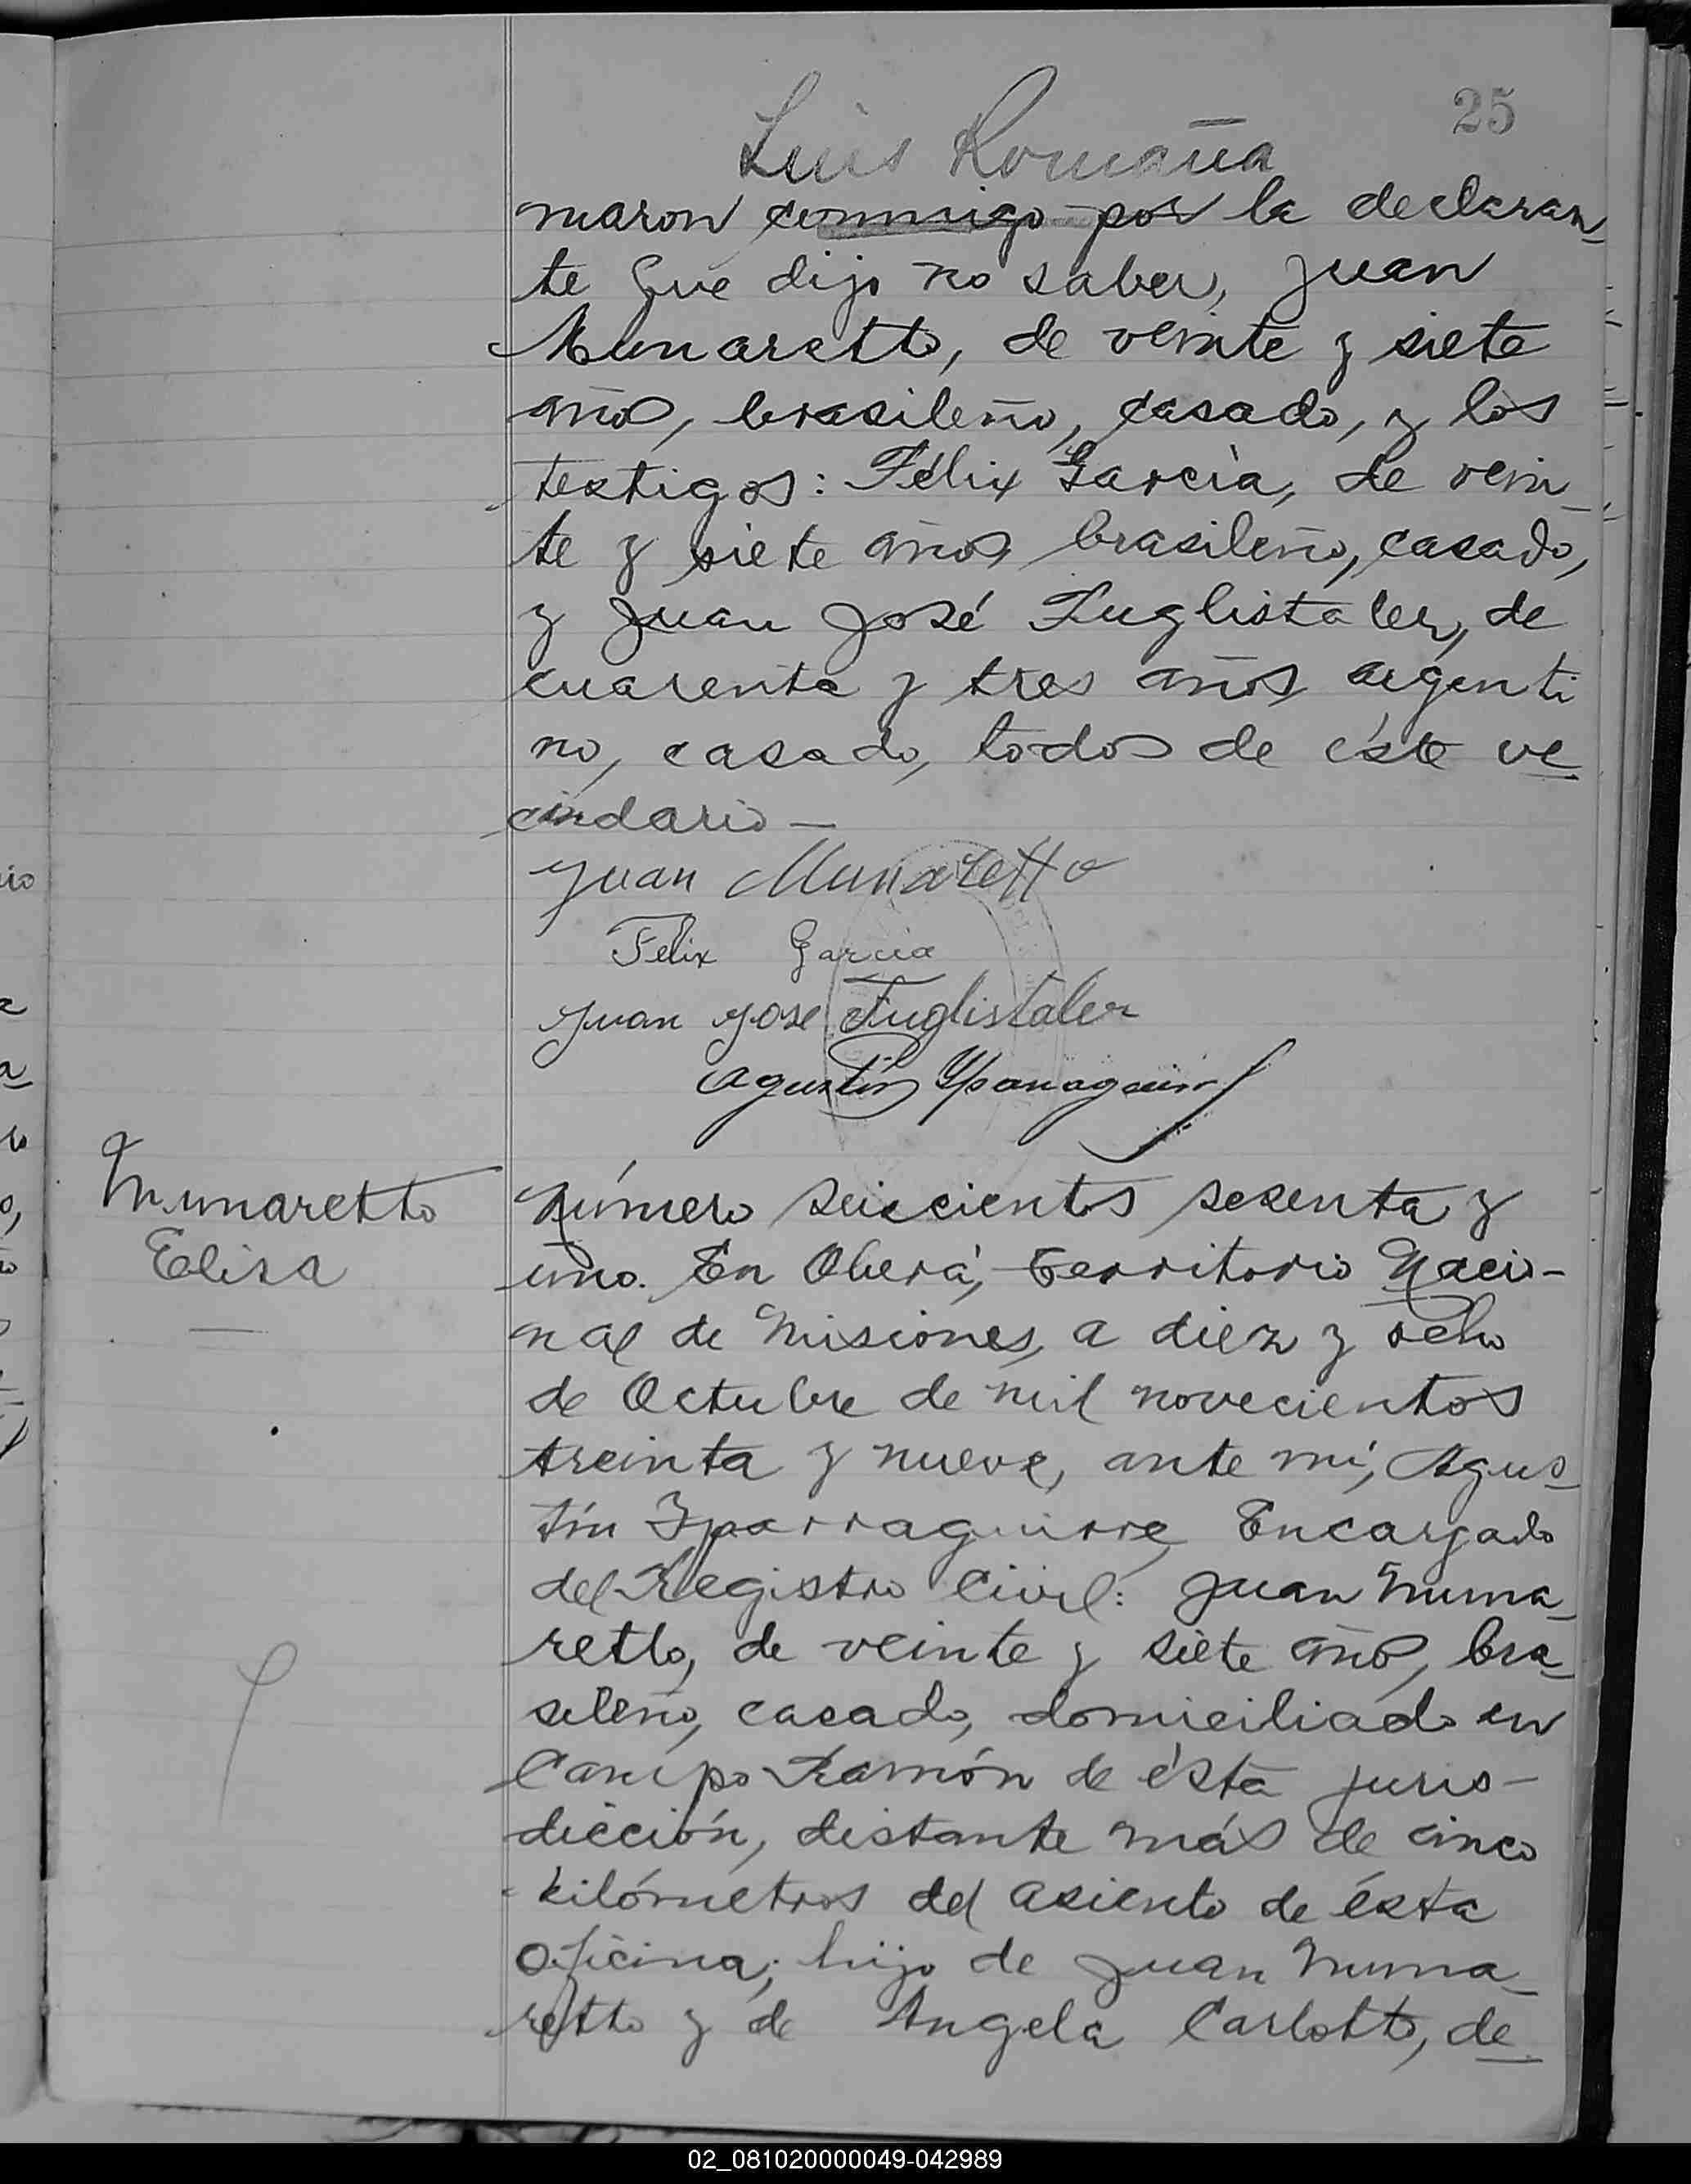 25
Luis Romaña
maron conmigo por la declaran_
te que dijo no saber, Juan
Munaretto, de veinte y siete
años, brasileño, casado, y los
testigos: Félix García, de vein_
te y siete años brasileño, casado,
y Juan José Fuglistaler, de
cuarenta y tres años argenti
no, casado, todos de éste ve_
cindario —
Juan Munaretto
Felix Garcia
Juan Jose Fuglistaler
Agustín Yparraguirre
Munaretto
Elisa
Número seiscientos sesenta y
uno. En Oberá, Territorio Nacio-
nal de Misiones, a diez y ocho
de Octubre de mil novecientos
treinta y nueve, ante mí, Agus_
tín Yparraguirre, Encargado
del Registro Civil: Juan Muna_
retto, de veinte y siete años, bra_
sileño, casado, domiciliado en
Campo Ramón de ésta juris-
dicción, distante más de cinco
kilómetros del asiento de ésta
oficina; hijo de Juan Muna_
retto y de Angela Carlotto, de_
02_081020000049-042989